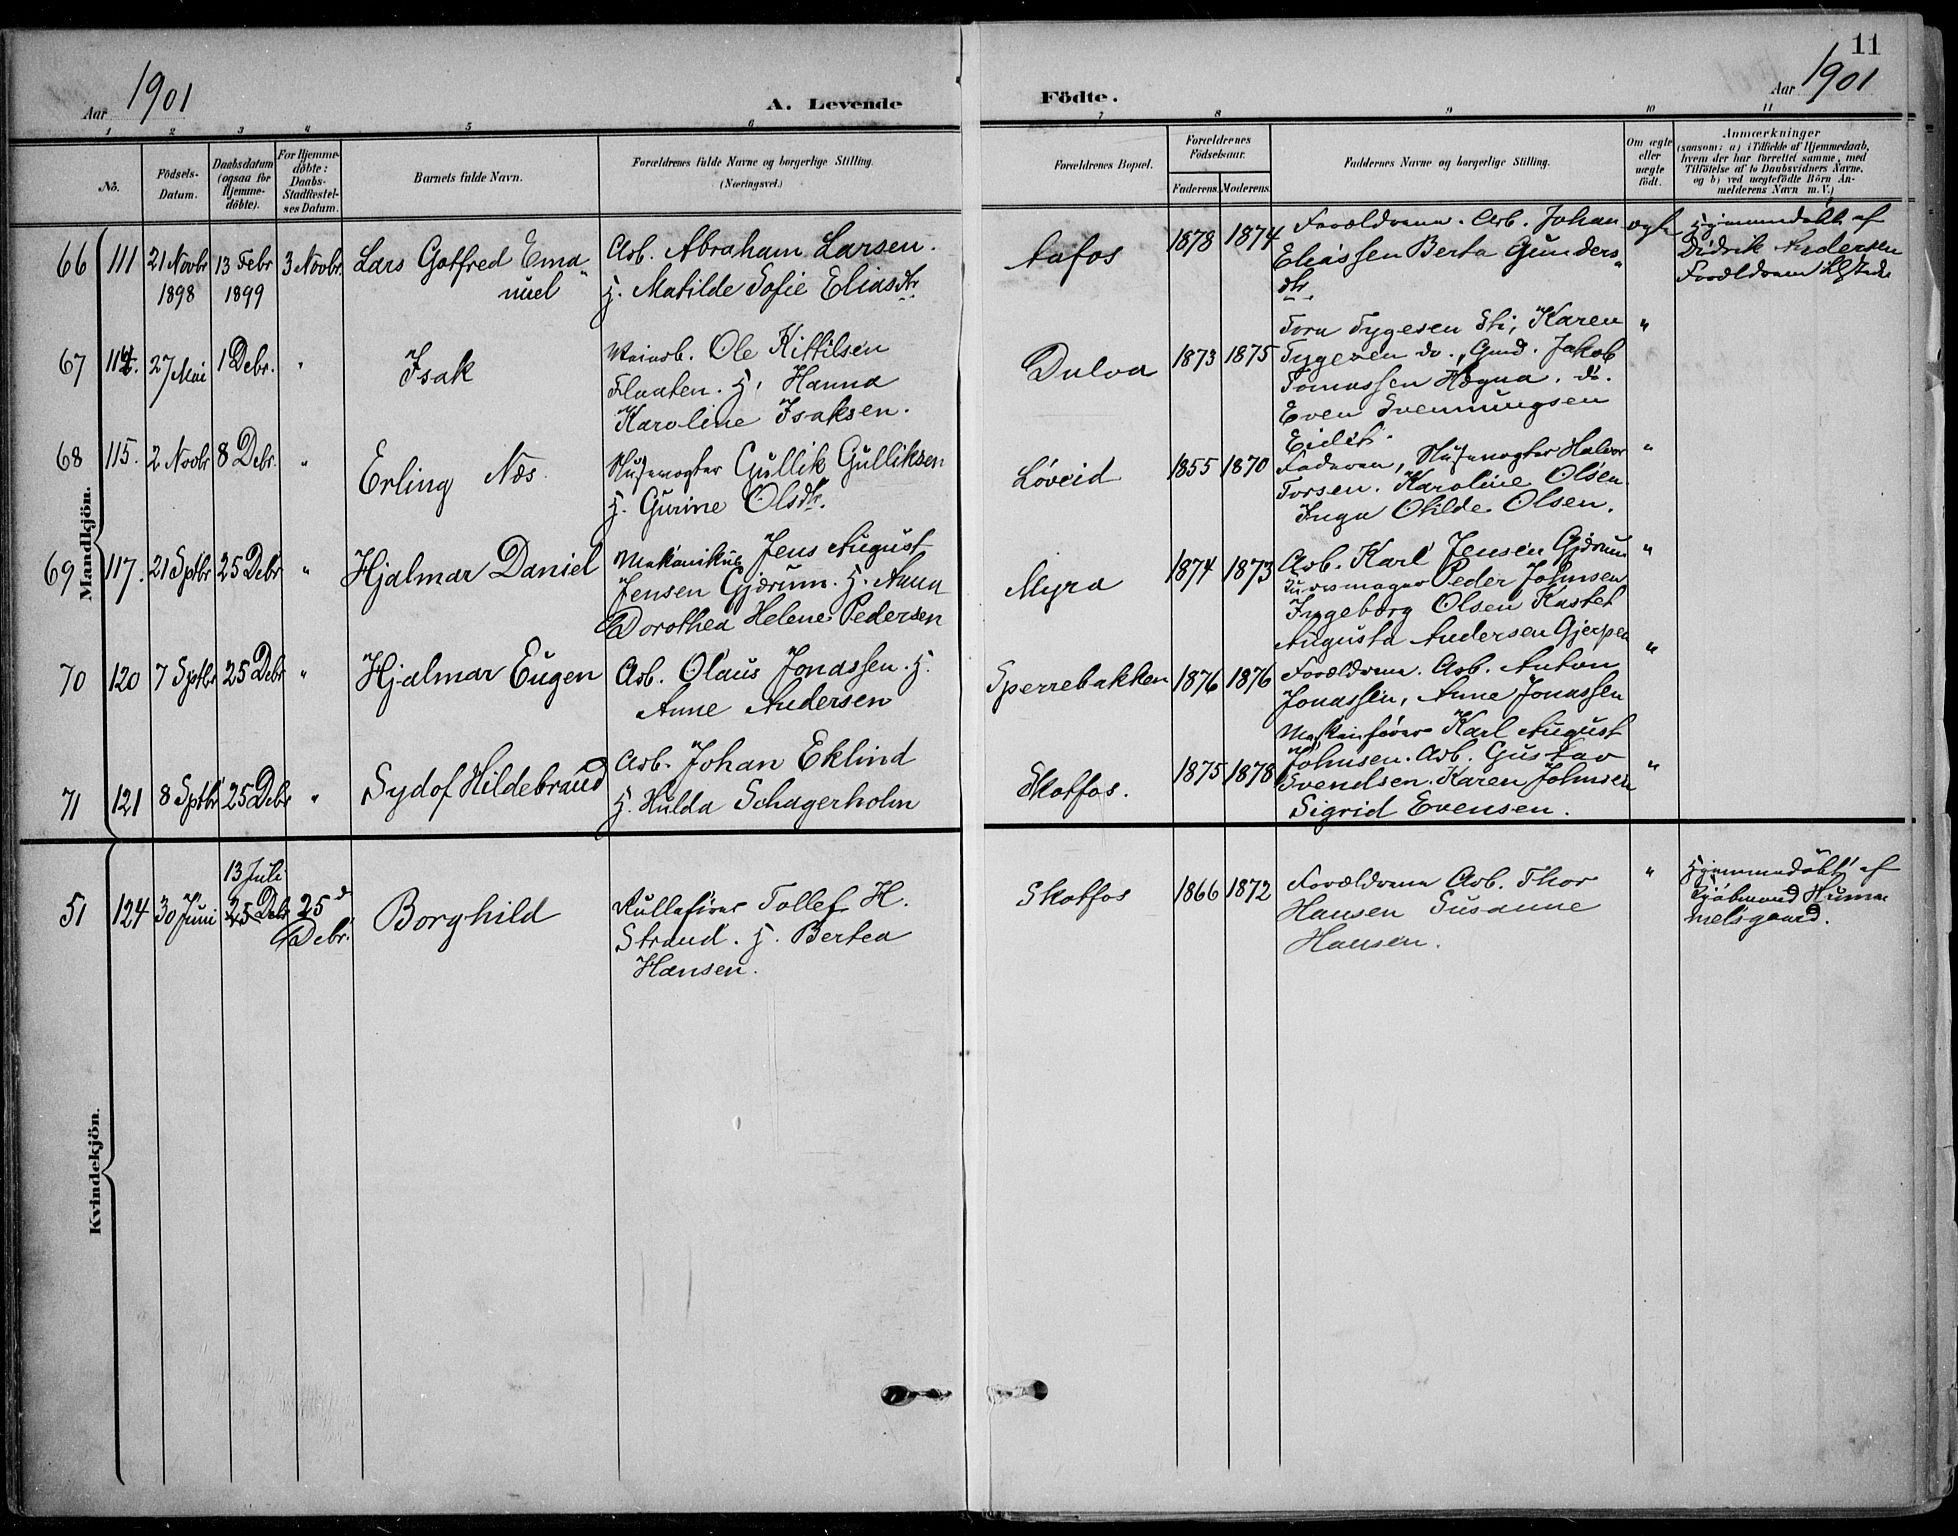 11
Aar 1901
A. Levende
Födte.
Aar 1901
1 2 3 4 5 6 7 8 9 10 11
No.
Födsels-
Datum.
Daabsdatum
(ogsaa for
Hjemme-
döbte).
For Hjemme-
döbte:
Daabs-
Stadfæstel-
ses Datum.
Barnets fulde Navn.
Forældrenes fulde Navne og borgerlige Stilling.
(Næringsvei.)
Forældrenes Bopæl.
Forældrenes
Födselsaar.
Faderens. Moderens.
Faddernes Navne og borgerlige Stilling.
Om ægte
eller
uægte
födt.
Anmærkninger
(saasom: a) i Tilfælde af Hjemmedaab,
hvem der har forrettet samme, med
Tilföielse af to Daabsvidners Navne,
og b) ved uægtefödte Börn An-
melderens Navn m. V.)
Mandkjön.
66 111 21 Novbr 1898 13 Febr 1899 3 Novbr.
Lars Gotfred Ema
nuel
Arb. Abraham Larsen.
H. Matilde Sofie Eliasdtr
Aafos
1878 1874
Forældrene. Arb. Johan
Eliassen Berta Gunders
dtr.
ægte
Hjemmedöbt af
Didrik Andersen
Forældrene tilstede
67 114. 27 Mai 1 Debr. "
Isak
Veiarb. Ole Kittilsen
Flaaten. H. Hanna
Karoline Isaksen.
Dulva
1873 1875
Tora Tygesen Sti, Karen
Tygesen do., Gmd. Jakob
Tomassen Hægna. do.
Even Svennungsen
Eidet.
"
68 115. 2 Novbr 8 Debr. "
Erling Næs.
Slusevogter Gullik Gulliksen
H. Gurine Olsdtr.
Löveid
1855 1870
Faderen, Slusevogter Halvor
Torsen. Karoline Olsen
Inga Otilde Olsen.
"
69 117. 21 Sptbr 25 Debr "
Hjalmar Daniel
Mekanikus Jens August
Jensen Gjærum. H. Anna
Dorothea Helene Pedersen
Myra
1874 1873
Arb. Karl Jensen Gjærum
Peder Johnsen
Ingeborg Olsen Kastet
Augusta Andersen Gjerpen
"
70 120 7 Sptbr 25 Debr "
Hjalmar Eugen
Arb. Olaus Jonassen. H.
Anne Andersen
Sperrebakken
1876 1876
Forældrene. Arb. Anton
Jonassen, Anne Jonassen
"
71 121 8 Sptbr 25 Debr "
Sydof Hildebrand
Arb. Johan Eklind
H. Hulda Schagerholm
Skotfos.
1875 1878
Maskinförer Karl August
Johnsen. Arb. Gustav
Svendsen. Karen Johnsen
Sigrid Evensen.
"
Kvindekjön.
51 124 30 Juni 13 Juli 25 Debr 25d Debr.
Borghild
Rulleförer Tollef H.
Strand. H. Bertea
Hansen.
Skotfos
1866 1872
Forældrene Arb. Thor
Hansen Susanne
Hansen.
"
Hjemmedöbt af
Kjöbmand Hum
melsgaard.